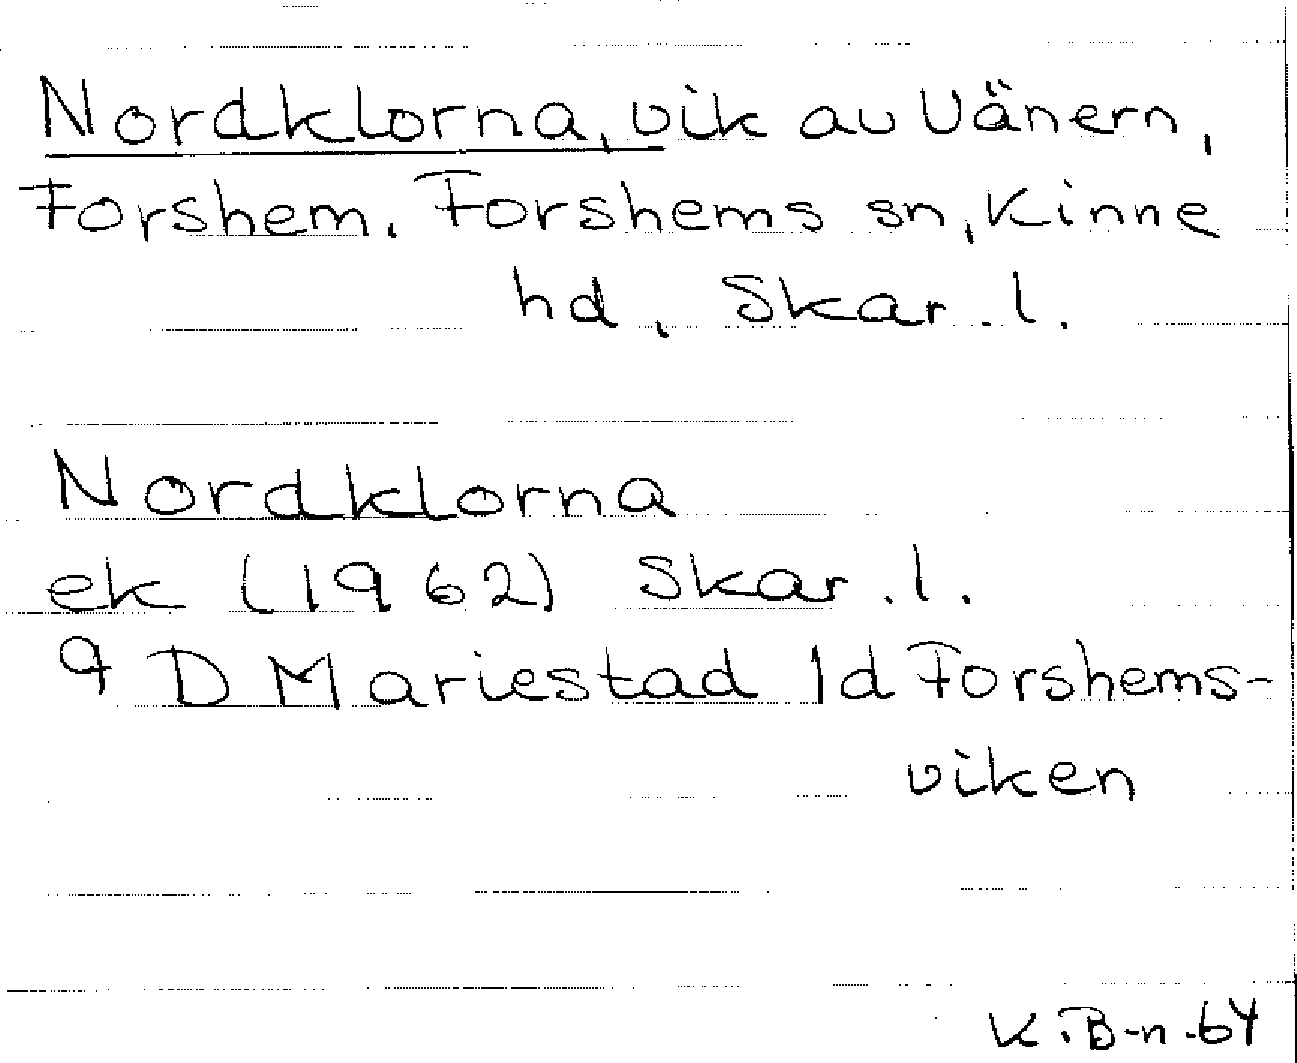 Nordklorna, vik av Vänern,
Forshem. Forshems sn, Kinne
hd, Skar. l.
Nordklorna
ek (1962) Skar. l.
9 D Mariestad 1d Forshems-
viken
K. B-n -64